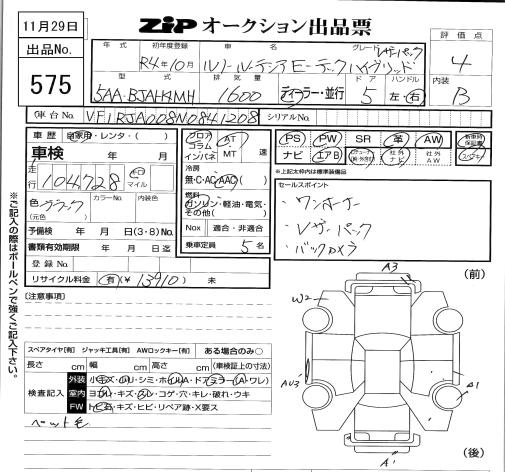 11月29日
ZiP オークション出品票
出品No.
575
年式 初年度登録 車名 グレード 評価点
R4年10月 ルノー ルーテシア E-テックハイブリッド レザーパック 4
型式 排気量 ドア ハンドル 内装
5AA-BJAH4MH 1600 ディーラー・並行 5 左・右 B
車台No. VF1RJA008W0841208 シリアルNo.
車歴 自家用・レンタ・( )
車検 年 月
走行 104,728 キロ マイル
色 ブラック (元色) カラーNo. 内装色
予備検 年 月 日(3・8)No.
書類有効期限 年 月 日迄
登録No.
リサイクル料金 有(¥ 13910) 未
フロア コラム インパネ
AT MT 速
冷房
無・C・AC(AAC)
燃料
ガソリン・軽油・電気・その他( )
Nox 適合・非適合
乗車定員 5 名
PS PW SR 革 AW 新車時保証書
ナビ エアB 社外ナビ 社外AW
※上記太枠内は標準装備品
セールスポイント
・ワンオーナー
・レザーパック
・バックカメラ
[注意事項]
スペアタイヤ[有] ジャッキ工具[有] AWロックキー[有] ある場合のみ○
長さ cm 幅 cm 高さ cm (車検証上の寸法)
検査記入
外装
室内
FW トビ石・キズ・ヒビ・リペア跡・X要ス
ペット毛
※ご記入の際はボールペンで強くご記入下さい。
(前)
A3
W2
AU3
A1
A1
(後)